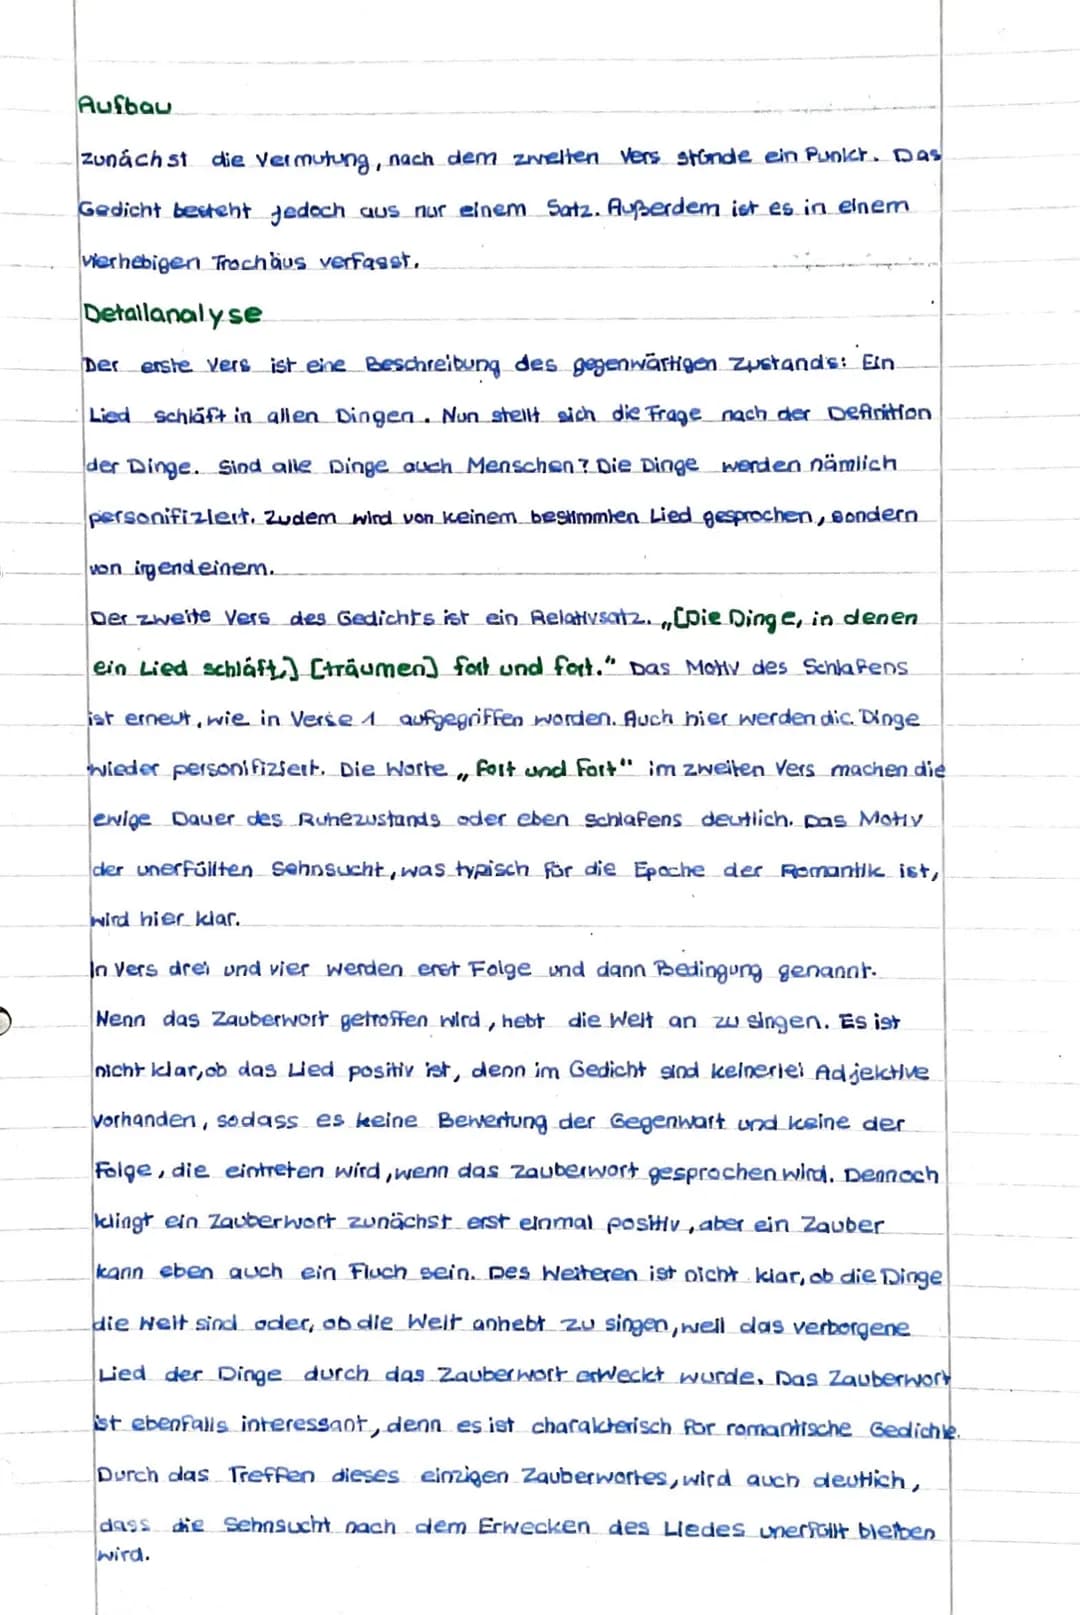 Aufbau
zunächst die Vermutung, nach dem zweiten Vers stünde ein Punkt. Das
Gedicht besteht jedoch aus nur einem Satz. Außerdem ist es in einem
vierhebigen Trochäus verfasst.
Detailanalyse
Der erste Vers ist eine Beschreibung des gegenwärtigen Zustands: Ein
Lied schläft in allen Dingen. Nun stellt sich die Frage nach der Definition
der Dinge. Sind alle Dinge auch Menschen? Die Dinge werden nämlich
personifiziert. Zudem wird von keinem bestimmten Lied gesprochen, sondern
von irgendeinem.
Der zweite Vers des Gedichts ist ein Relativsatz. „[Die Dinge, in denen
ein Lied schläft,] [träumen] fort und fort." Das Motiv des Schlafens
ist erneut, wie in Verse 1 aufgegriffen worden. Auch hier werden die Dinge
wieder personifiziert. Die Worte „fort und fort" im zweiten Vers machen die
ewige Dauer des Ruhezustands oder eben Schlafens deutlich. Das Motiv
der unerfüllten Sehnsucht, was typisch für die Epoche der Romantik ist,
wird hier klar.
In Vers drei und vier werden erst Folge und dann Bedingung genannt.
Wenn das Zauberwort getroffen wird, hebt die Welt an zu singen. Es ist
nicht klar, ob das Lied positiv ist, denn im Gedicht sind keinerlei Adjektive
vorhanden, sodass es keine Bewertung der Gegenwart und keine der
Folge, die eintreten wird, wenn das Zauberwort gesprochen wird. Dennoch
klingt ein Zauberwort zunächst erst einmal positiv, aber ein Zauber
kann eben auch ein Fluch sein. Des Weiteren ist nicht klar, ob die Dinge
die Welt sind oder, ob die Welt anhebt zu singen, weil das verborgene
Lied der Dinge durch das Zauberwort erweckt wurde. Das Zauberwort
ist ebenfalls interessant, denn es ist charakterisch für romantische Gedichte.
Durch das Treffen dieses einzigen Zauberwortes, wird auch deutlich,
dass die Sehnsucht nach dem Erwecken des Liedes unerfüllt bleiben
wird.